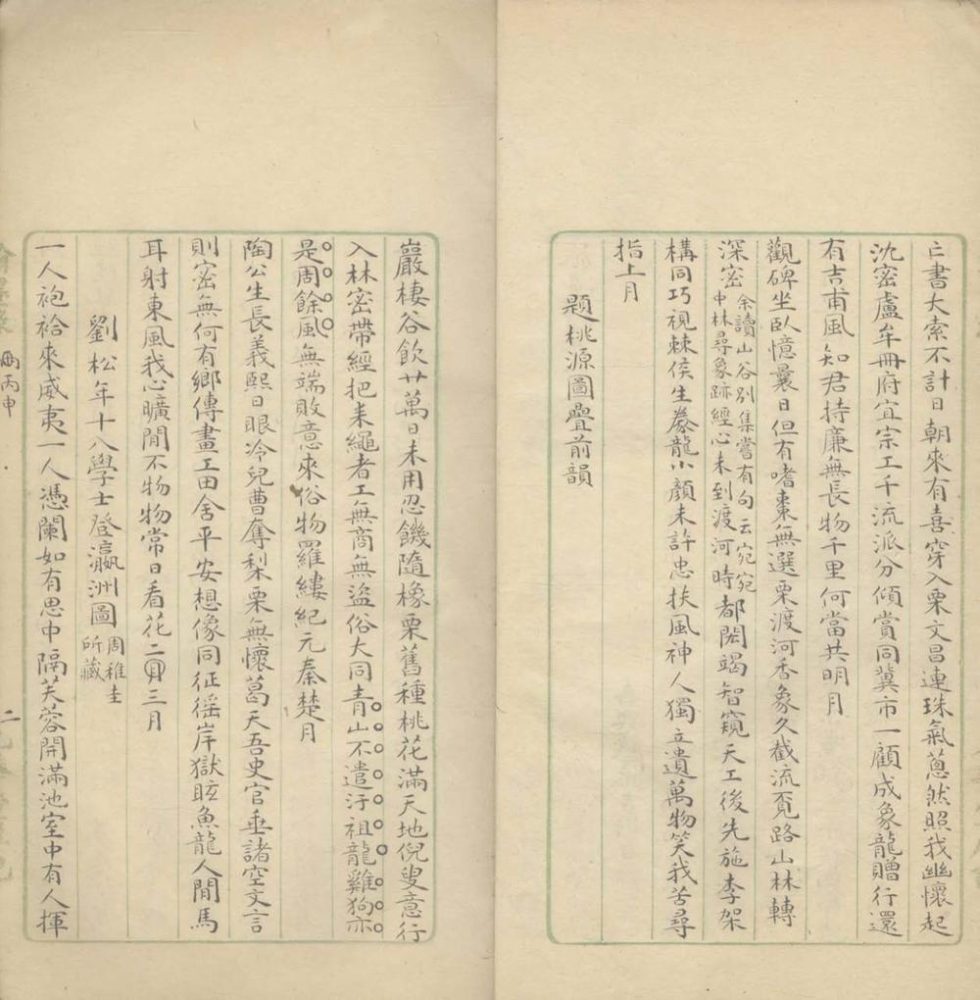 亡書大索不計日朝來有喜穿入栗文昌連珠氣蔥然照我幽懷起
沈密盧牟冊府宜宗工千流派分傾賞同冀市一顧成象龍贈行還
有吉甫風知君持廉無長物千里何當共明月
觀碑坐臥憶曩日但有嗜棗無選栗渡河香象久截流覓路山林轉
深密余讀山谷別集嘗有句云宛宛中林尋象跡經心未到渡河時都閎竭智窺天工後先施李架
構同巧視棘侯生養龍小顏未許忠扶風神人獨立遺萬物笑我苦尋
指上月
題桃源圖疊前韻
巖棲谷飲廿萬日未用忍饑隨橡栗舊種桃花滿天地倪叟意行
入林密帶經把耒繩者工無商無盜俗大同青山不遣汙祖龍雞狗亦
是周餘風無端敗意來俗物羅縷紀元秦楚月
陶公生長義熙日眼冷兒曹奪梨栗無懷葛天吾史官垂諸空文言
則密無何有鄉傳畫工田舍平安想像同征徭岸獄眩魚龍人間馬
耳射東風我心曠閒不物物常日看花二三月
劉松年十八學士登瀛洲圖周稚圭所藏
一人袍袷來威夷一人憑闌如有思中隔芙蓉開滿池室中有人揮
丙申
二